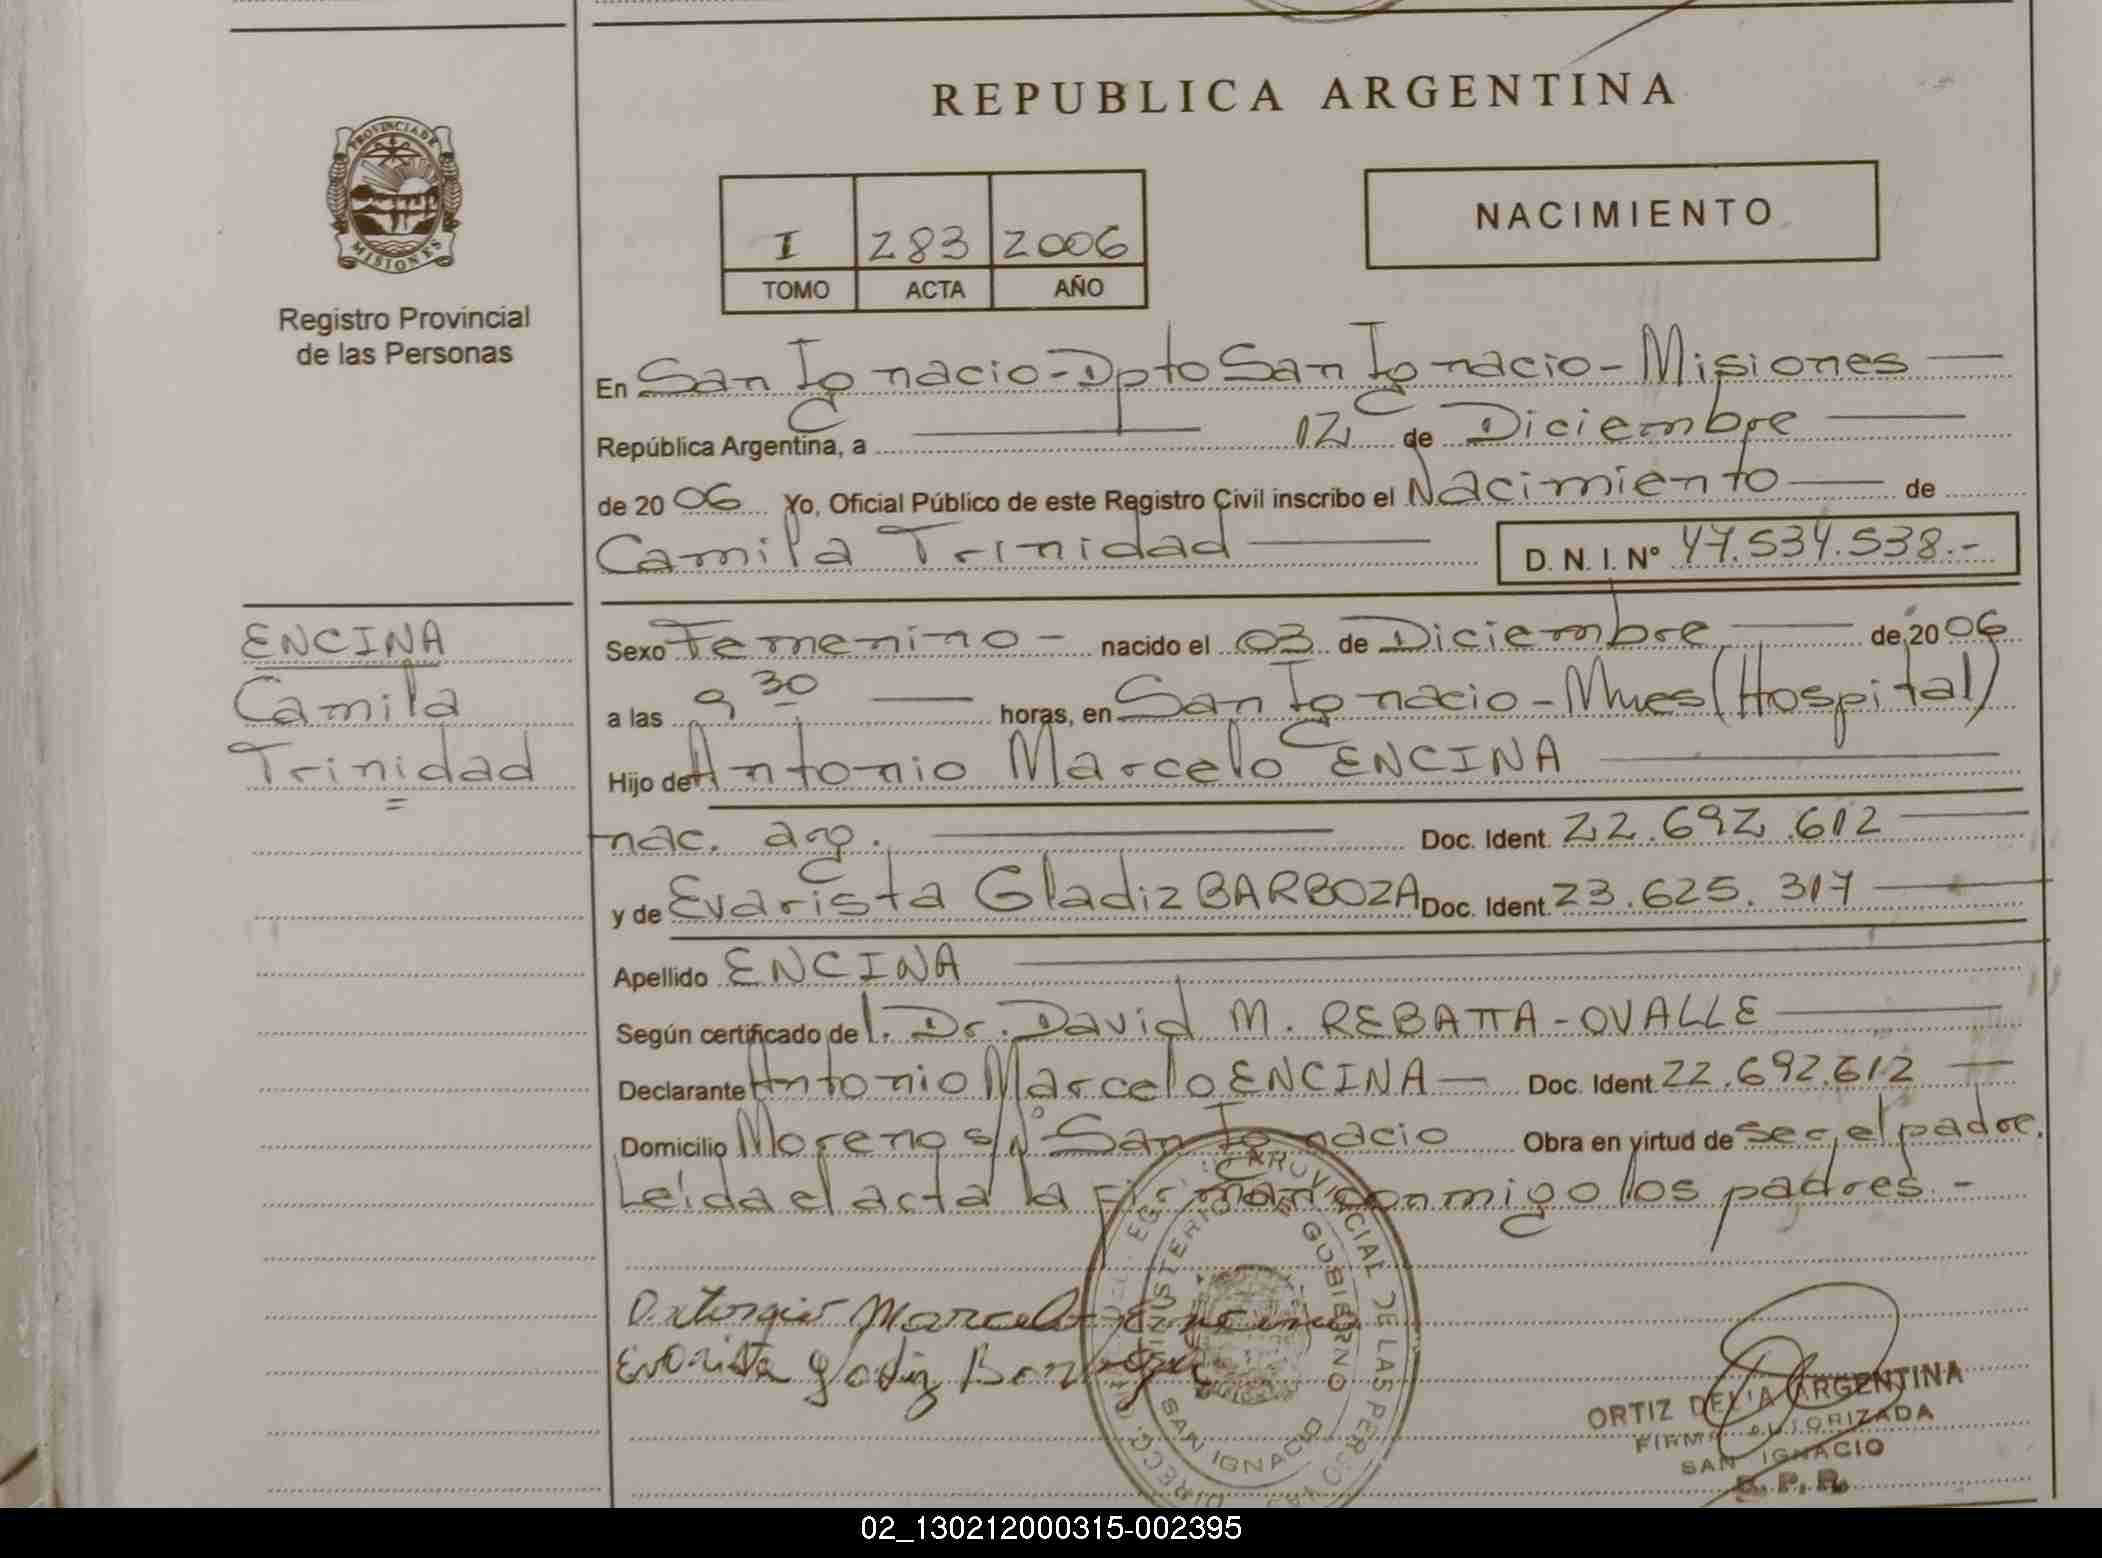 REPUBLICA ARGENTINA
PROVINCIA DE MISIONES
Registro Provincial
de las Personas
I 283 2006
TOMO ACTA AÑO
NACIMIENTO
En San Ignacio - Dpto San Ignacio - Misiones
República Argentina, a 12 de Diciembre
de 2006 Yo, Oficial Público de este Registro Civil inscribo el Nacimiento de
Camila Trinidad D. N. I. Nº 47.534.538.-
ENCINA
Camila
Trinidad
Sexo Femenino - nacido el 03 de Diciembre de 2006
a las 9 30 horas, en San Ignacio - Mnes (Hospital)
Hijo de Antonio Marcelo ENCINA
nac. arg. Doc. Ident. 22.692.612
y de Evarista Gladiz BARBOZA Doc. Ident. 23.625.317
Apellido ENCINA
Según certificado de l. Dr. David M. REBATTA - OVALLE
Declarante Antonio Marcelo ENCINA - Doc. Ident. 22.692.612
Domicilio Moreno s/Nº San Ignacio Obra en virtud de ser el padre.
Leída el acta la firman conmigo los padres. -
Antonio Marcelo Encina
Evarista Gladiz Barboza
PROVINCIAL DE LAS PERSO
MINISTERIO GOBIERNO
SAN IGNACIO
ORTIZ DELIA ARGENTINA
FIRMA AUTORIZADA
SAN IGNACIO
R. P. P.
02_130212000315-002395